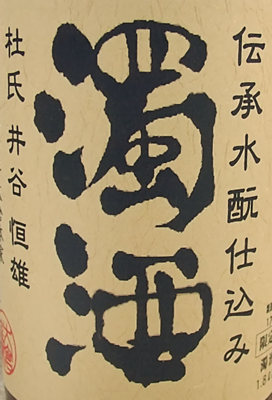 伝承水酛仕込み
濁酒
杜氏 井谷恒雄